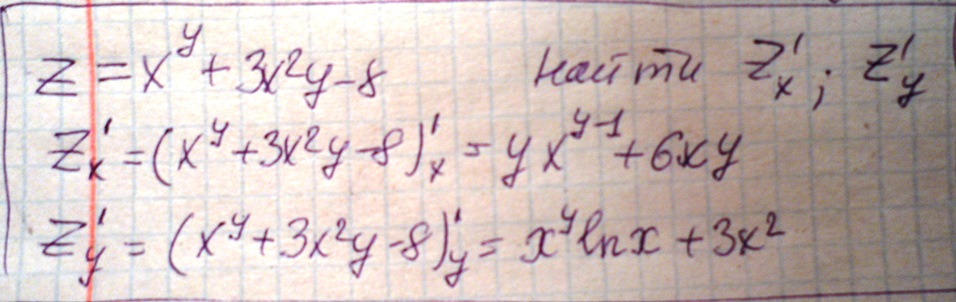 z = x^y + 3x²y - 8 Найти z'_x ; z'_y
z'_x = (x^y + 3x²y - 8)'_x = y x^{y-1} + 6xy
z'_y = (x^y + 3x²y - 8)'_y = x^y ln x + 3x²